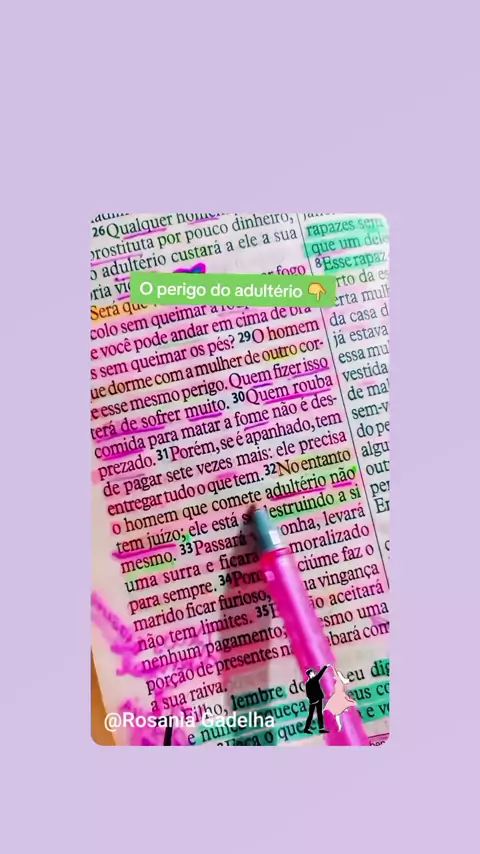 26Qualquer homem
prostituta por pouco dinheiro,
o adultério custará a ele a sua
fogo
O perigo do adultério 👇
Será que
colo sem queimar a
e você pode andar em cima de
s sem queimar os pés? 29O homem
ue dorme com a mulher de outro cor-
e esse mesmo perigo. Quem fizer isso
terá de sofrer muito. 30Quem rouba
comida para matar a fome não é des-
prezado. 31Porém, se é apanhado, tem
de pagar sete vezes mais: ele precisa
entregar tudo o que tem. 32No entanto
o homem que comete adultério não
tem juízo; ele está destruindo a si
mesmo. 33Passará onha, levará
uma surra e ficará moralizado
para sempre. 34 ciúme faz o
marido ficar furioso, na vingança
não tem limites. 35 ão aceitará
nenhum pagamento; esmo uma
porção de presentes não bará com
a sua raiva.
Filho, lembre do eu
@Rosania Gadelha
e nunca esqueça eus
o que e
rapazes sem
que um deles
8Esse rapaz
rto da es
erta mulh
da casa d
já estava
essa mu
vestida
de mal
sem-v
do pe
algu
out
per
Er